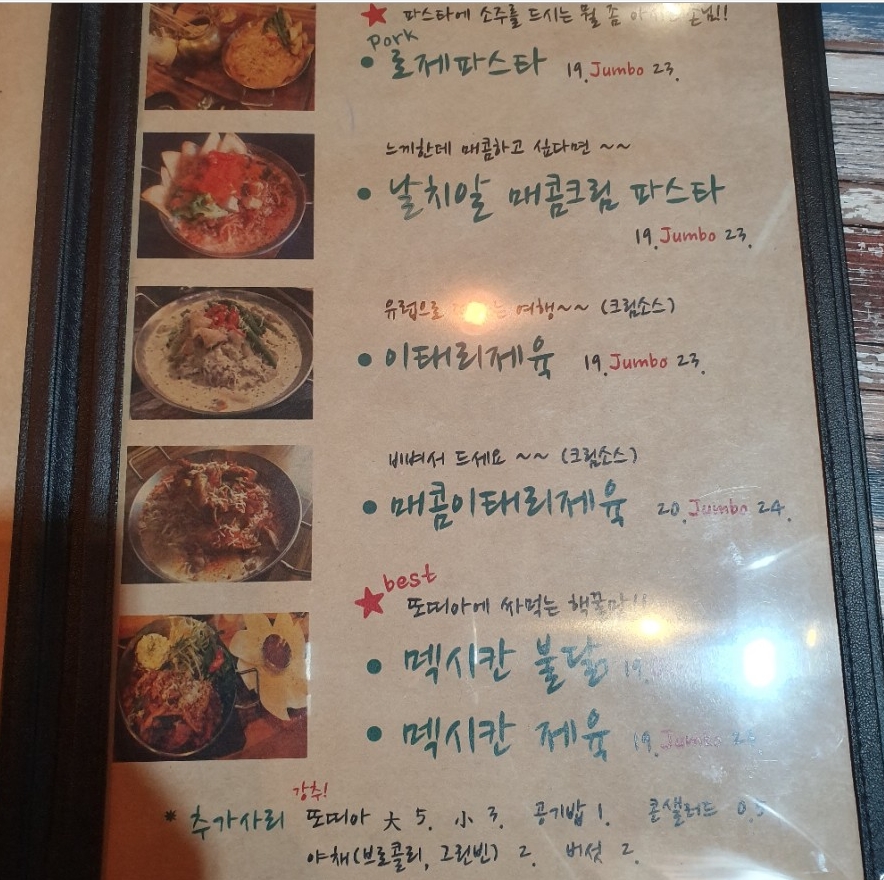 ★ 파스타에 소주를 드시는 뭘 좀 손님!!
pork
• 로제파스타 19. Jumbo 23.
느끼한데 매콤하고 싶다면 ~~
• 날치알 매콤크림 파스타
19. Jumbo 23.
유럽으로 여행~~ (크림소스)
• 이태리제육 19. Jumbo 23.
비벼서 드세요 ~~ (크림소스)
• 매콤이태리제육 20. Jumbo 24.
best
★ 또띠아에 싸먹는 핵꿀맛!!
• 멕시칸 불닭 19.
• 멕시칸 제육 19. Jumbo
강추!
* 추가사리 또띠아 大 5. 小 3. 공기밥 1. 콘샐러드 0.5
야채(브로콜리, 그린빈) 2. 버섯 2.